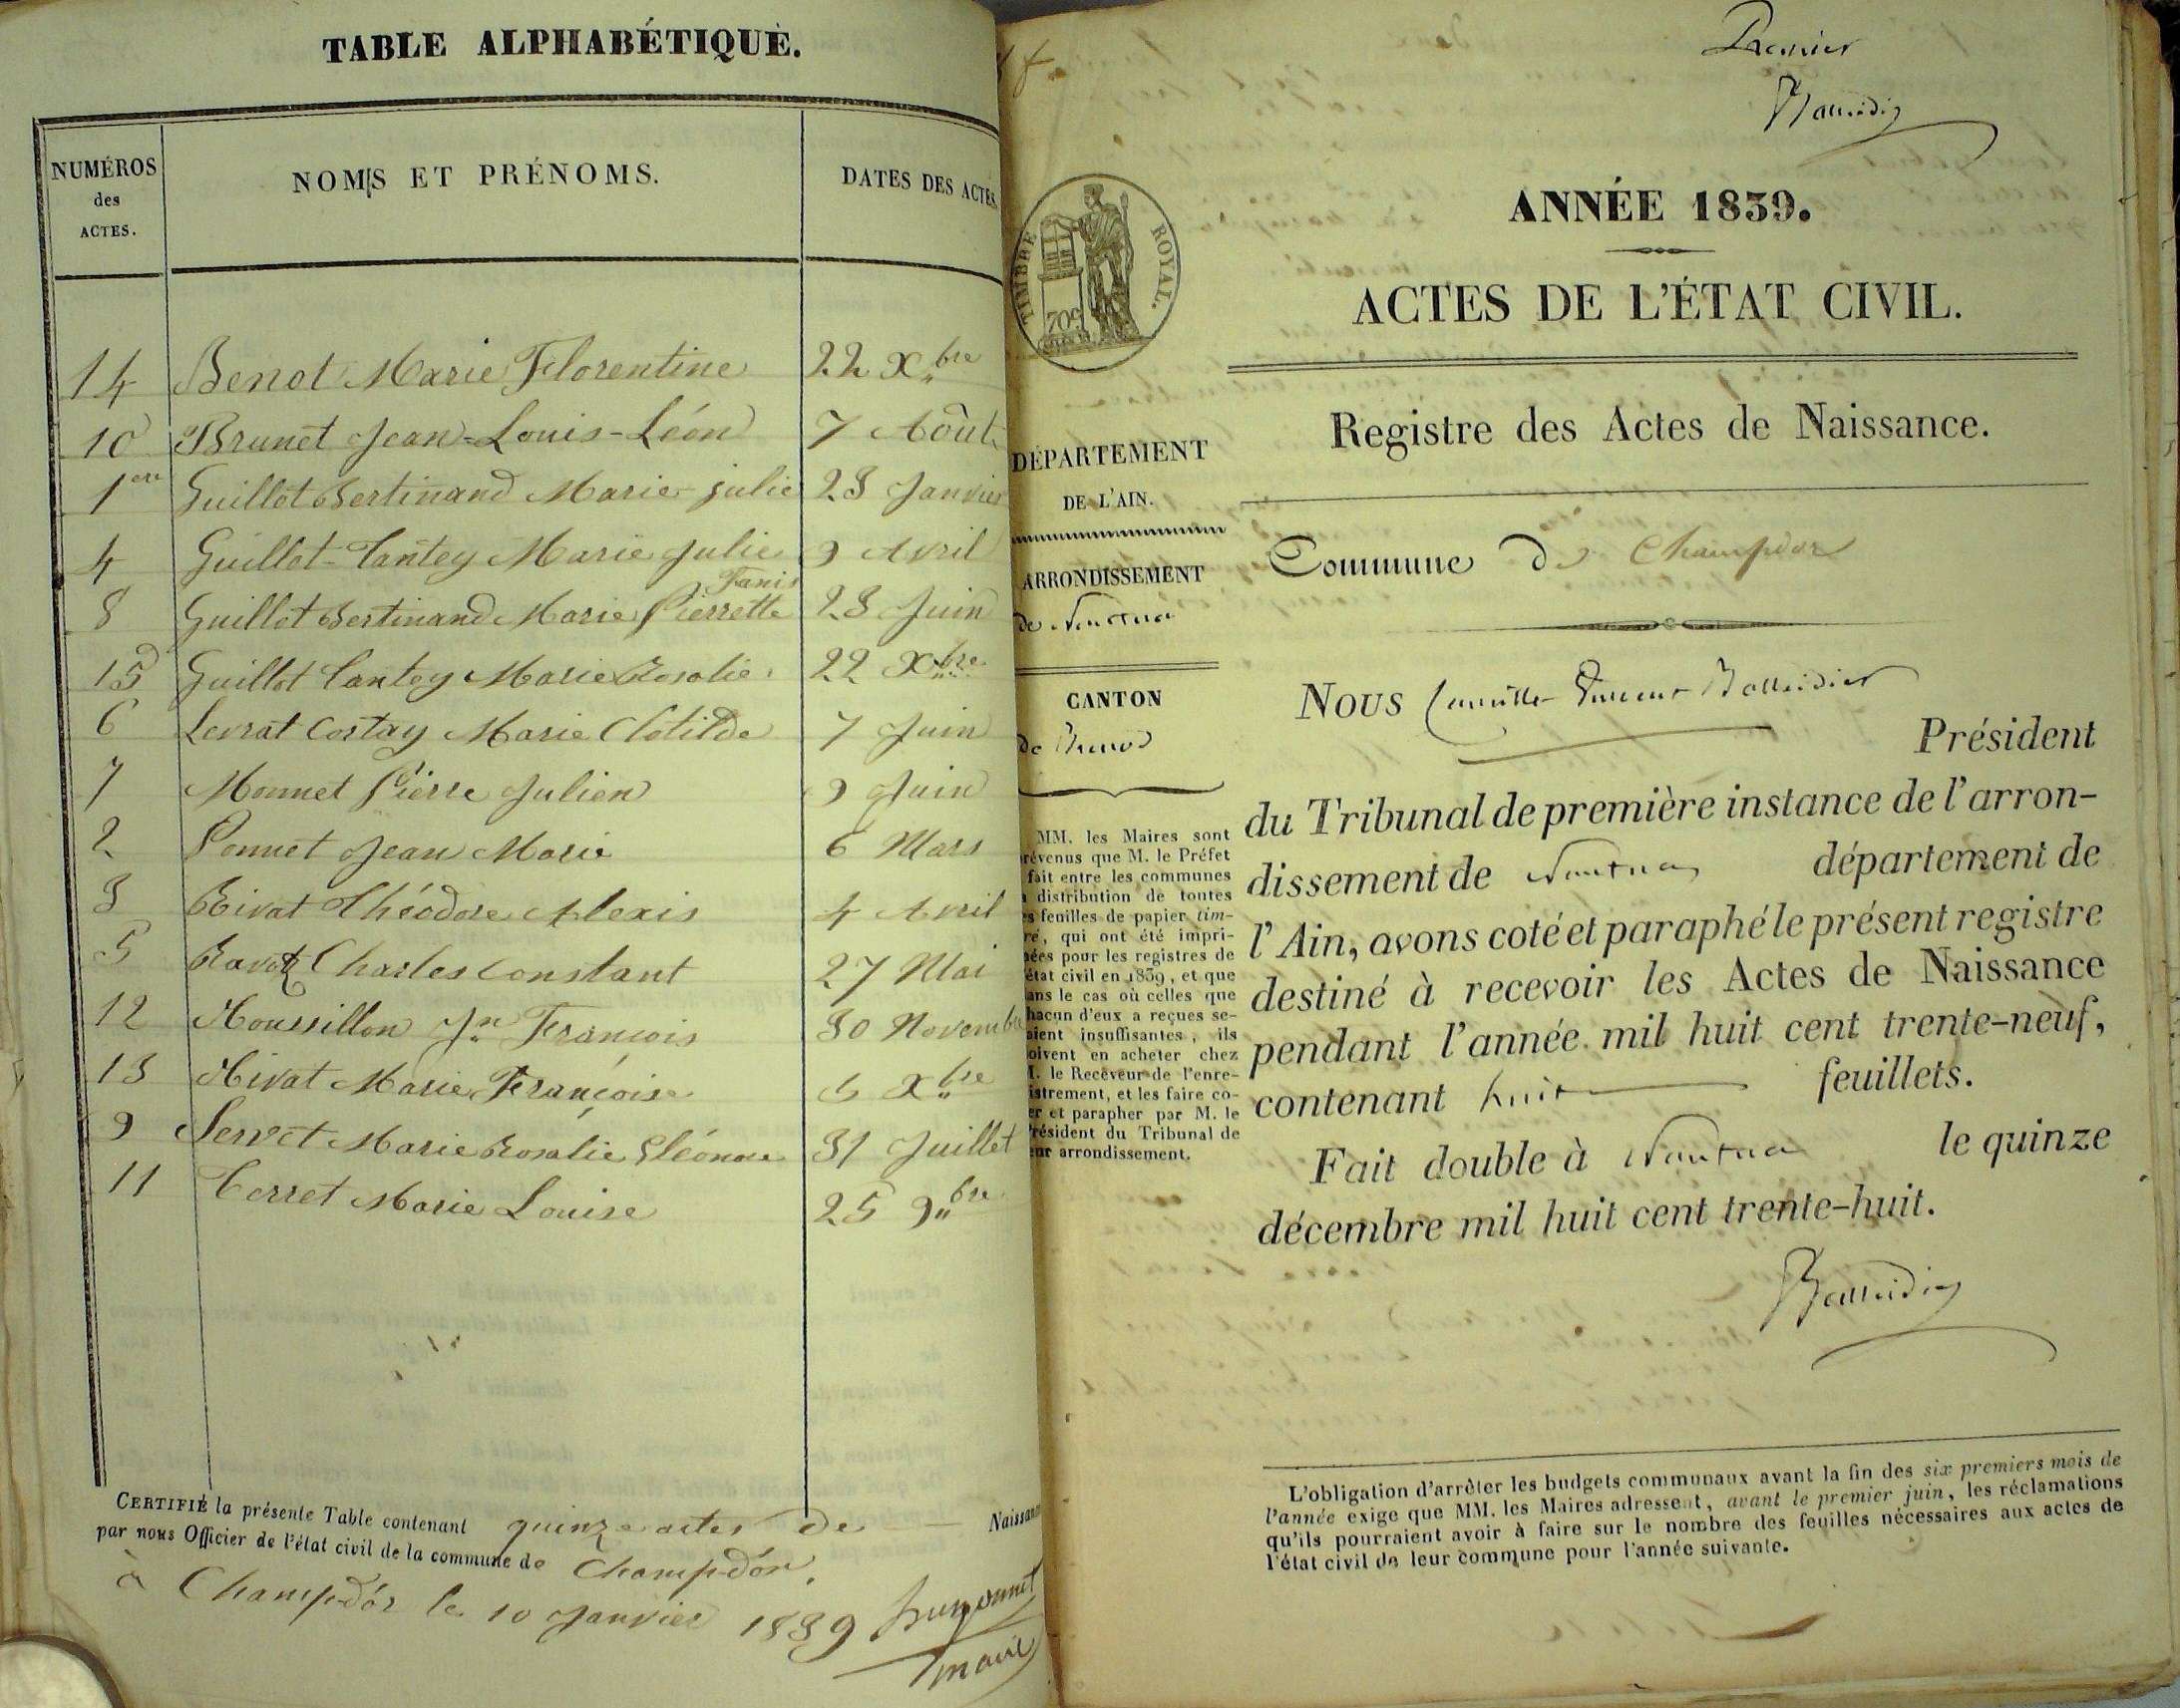 TABLE ALPHABÉTIQUE.
NUMÉROS
des
ACTES.
NOMS ET PRÉNOMS.
DATES DES ACTES.
14 Benot Marie Florentine 22 Xbre
10 Brunet Jean-Louis-Léon 7 Août
1ere Guillot Bertinand Marie julie 23 Janvier
4 Guillot-Tantey Marie Julie 9 Avril
Fanis
8 Guillot Bertinand Marie Pierrette 23 Juin
15 Guillot Tantey Marie Rosalie 22 Xbre
6 Levrat Costay Marie Clotilde 7 Juin
7 Monnet Pierre Julien 9 Juin
2 Ponnet Jean Marie 6 Mars
3 Rivat Théodore Alexis 4 Avril
5 Ravot Charles Constant 27 Mai
12 Roussillon Jn François 30 Novembre
13 Rivat Marie Françoise 6 Xbre
9 Servet Marie Rosalie Eléonore 31 Juillet
11 Terret Marie Louise 25 9bre
CERTIFIÉ la présente Table contenant quinze actes de Naissance
par nous Officier de l'état civil de la commune de Champdór.
à Champdór le 10 Janvier 1839
maire
Premier
TIMBRE ROYAL.
70c
ANNÉE 1839.
ACTES DE L'ÉTAT CIVIL.
Registre des Actes de Naissance.
DÉPARTEMENT
DE L'AIN.
ARRONDISSEMENT
de Nantua
CANTON
de Brenod
MM. les Maires sont
prévenus que M. le Préfet
fait entre les communes
la distribution de toutes
les feuilles de papier tim-
bré, qui ont été impri-
mées pour les registres de
l'état civil en 1839, et que
dans le cas où celles que
chacun d'eux a reçues se-
raient insuffisantes, ils
doivent en acheter chez
M. le Receveur de l'enre-
gistrement, et les faire co-
ter et parapher par M. le
Président du Tribunal de
leur arrondissement.
Commune de Champdor
Nous Camille Vincent
Président
du Tribunal de première instance de l'arron-
dissement de Nantua département de
l'Ain, avons coté et paraphé le présent registre
destiné à recevoir les Actes de Naissance
pendant l'année mil huit cent trente-neuf,
contenant huit feuillets.
Fait double à Nantua le quinze
décembre mil huit cent trente-huit.
L'obligation d'arrêter les budgets communaux avant la fin des six premiers mois de
l'année exige que MM. les Maires adressent, avant le premier juin, les réclamations
qu'ils pourraient avoir à faire sur le nombre des feuilles nécessaires aux actes de
l'état civil de leur commune pour l'année suivante.